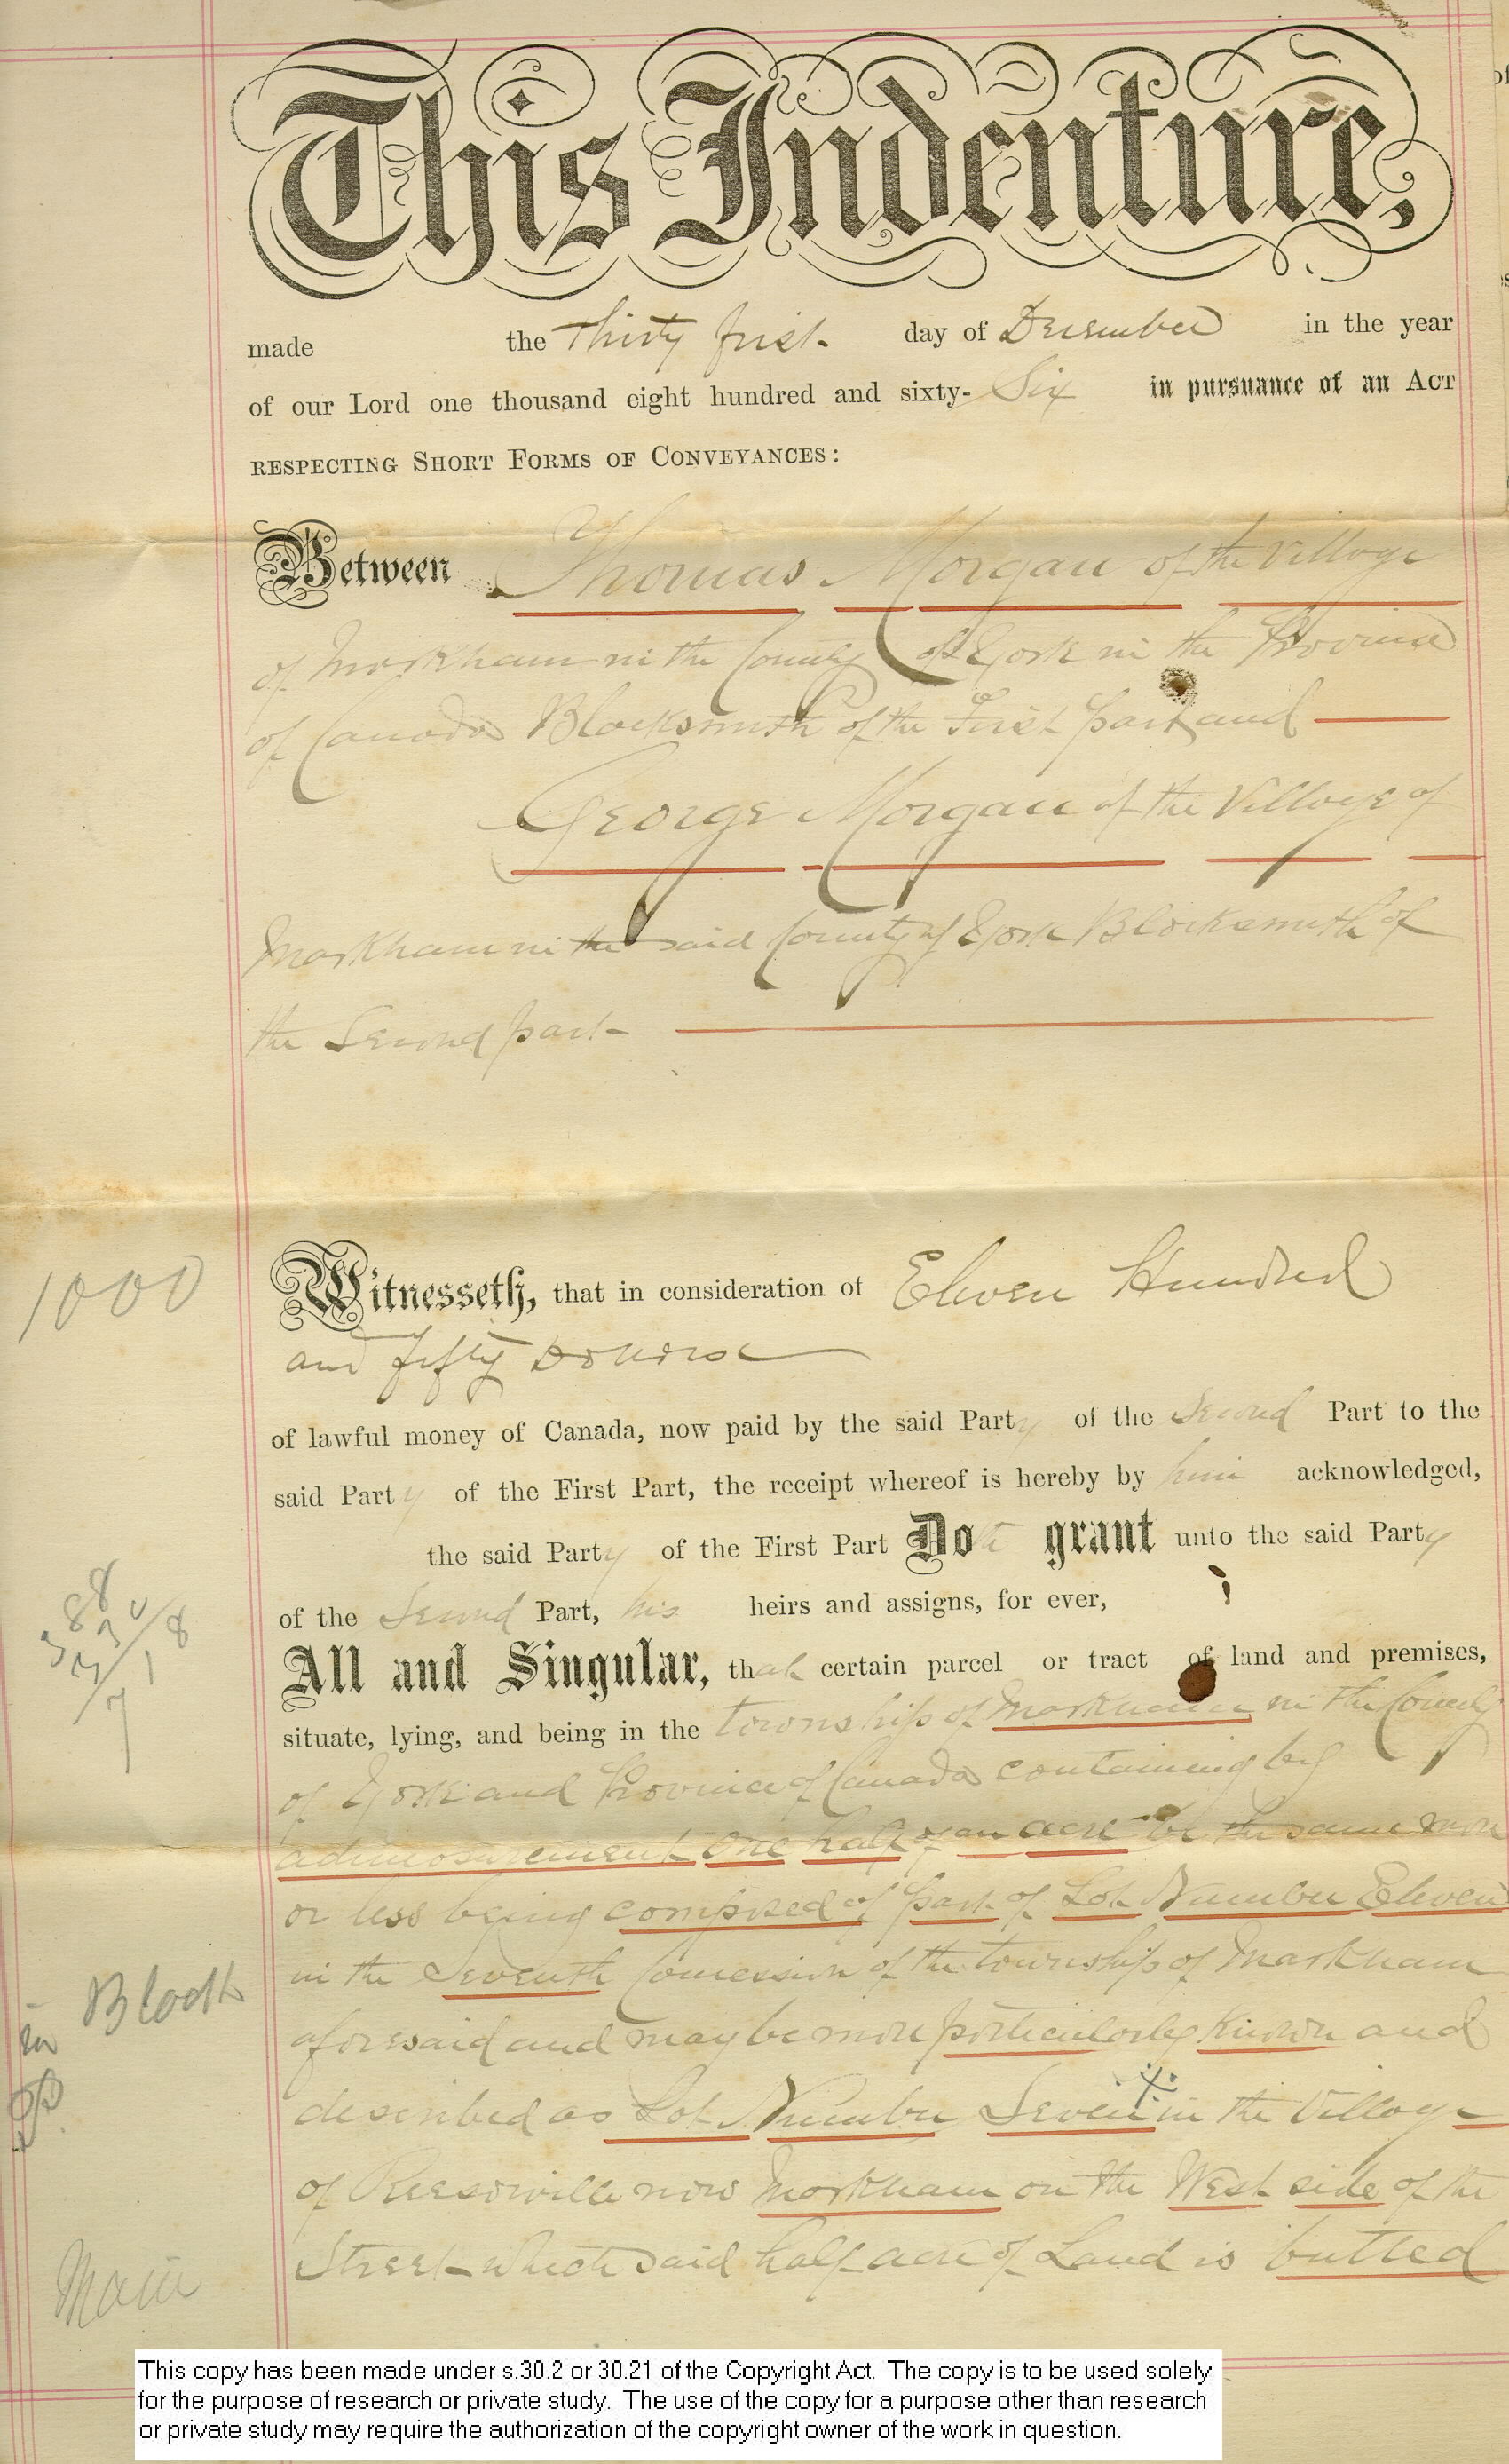 This Indenture,
made the Thirty first day of December in the year
of our Lord one thousand eight hundred and sixty- Six in pursuance of an Act
respecting Short Forms of Conveyances:
Between Thomas Morgan of the Village
of Markham in the County of York in the Province
of Canada Blacksmith of the First part and
George Morgan of the Village of
Markham in the said County of York Blacksmith of
the Second part
1000
Witnesseth, that in consideration of Eleven Hundred
and fifty Dollars
of lawful money of Canada, now paid by the said Party of the Second Part to the
said Party of the First Part, the receipt whereof is hereby by him acknowledged,
the said Party of the First Part Doth grant unto the said Party
of the Second Part, his heirs and assigns, for ever,
All and Singular, that certain parcel or tract of land and premises,
situate, lying, and being in the township of Markham in the County
of York and Province of Canada containing by
admeasurement one half of an acre be the same more
or less being composed of part of Lot Number Eleven
in the Seventh Concession of the township of Markham
aforesaid and may be more particularly known and
described as Lot Number Seven in the Village
of Reesorville now Markham on the West side of the
Street which said half acre of Land is butted
Block
in
Main
This copy has been made under s.30.2 or 30.21 of the Copyright Act. The copy is to be used solely
for the purpose of research or private study. The use of the copy for a purpose other than research
or private study may require the authorization of the copyright owner of the work in question.